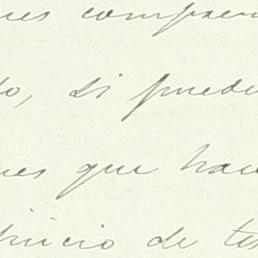 nes compren
lo, si puede
nes que hac
juicio de te